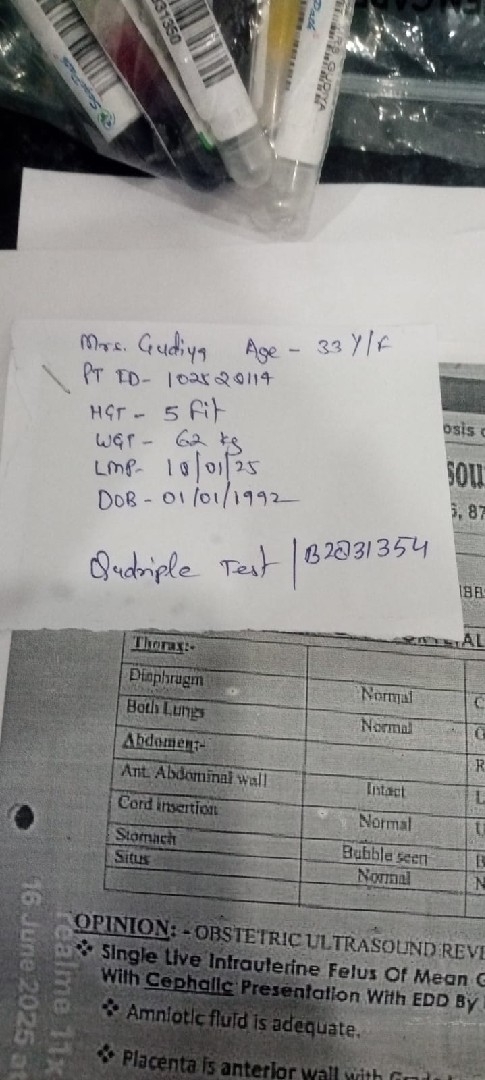 031350
Mrs. Gudiya Age - 33 Y/F
PT ID- 102520114
HGT - 5 fit
WGT - 62 kg
LMP- 10/01/25
DOB - 01/01/1992
Qudriple Test | B2031354
osis
sou
5, 87
Thorax:-
Diaphragm Normal
Both Lungs Normal
Abdomen:-
Ant. Abdominal wall Intact
Cord insertion Normal
Stomach Bubble seen
Situs Normal
OPINION: - OBSTETRIC ULTRASOUND REVE
❖ Single Live Intrauterine Fetus Of Mean G
With Cephalic Presentation With EDD By
❖ Amniotic fluid is adequate.
❖ Placenta is anterior wall with Grade
realme 11x
16 June 2025 at